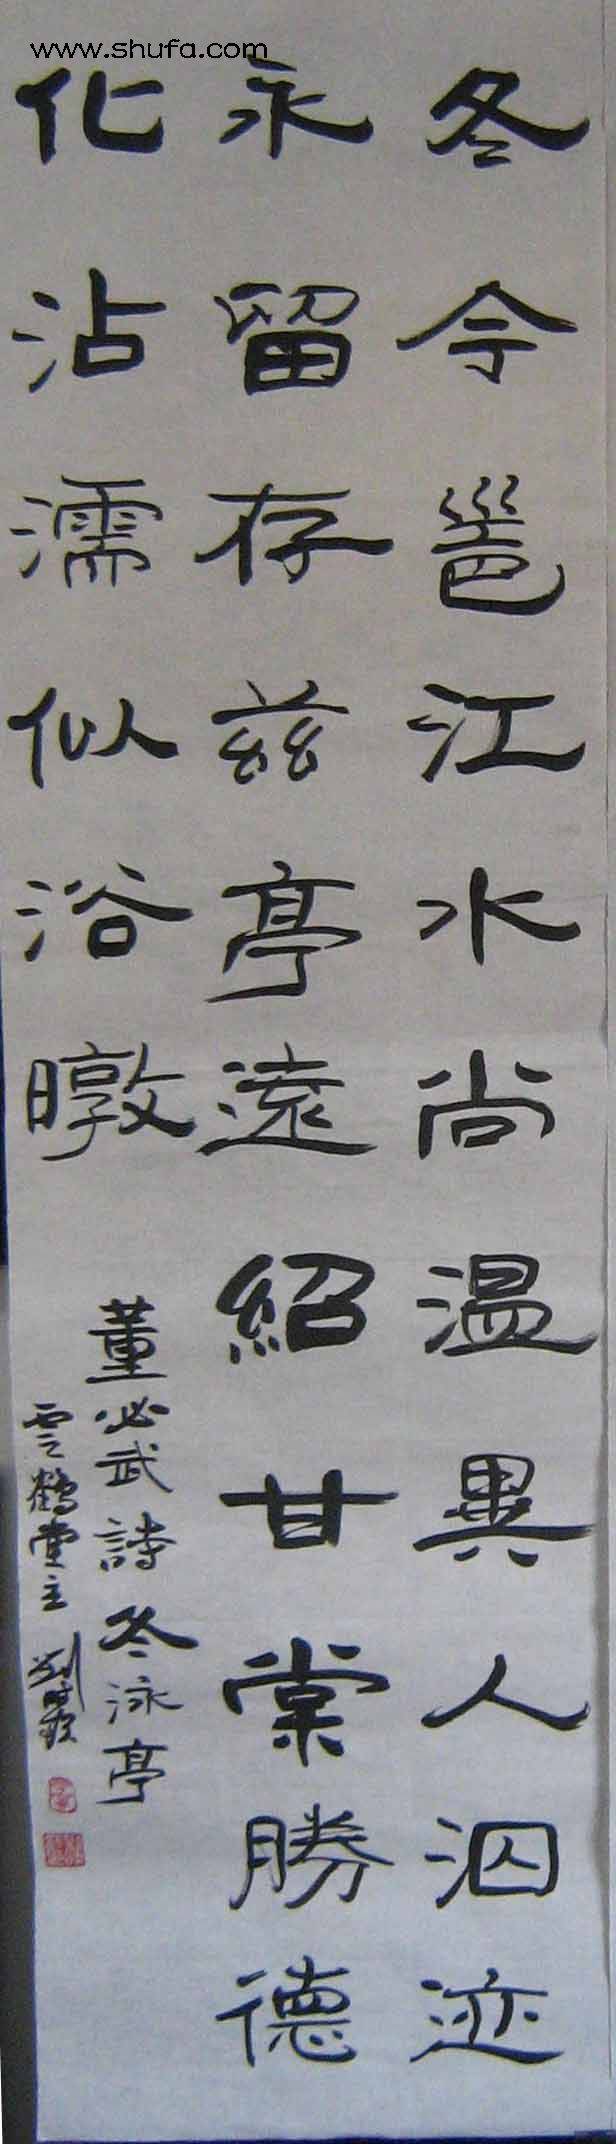 www.shufa.com
冬令邕江水尚温異人泅迹
永留存兹亭遠紹甘棠勝德
化沾濡似浴暾
董必武詩冬泳亭
雲鶴堂主劉